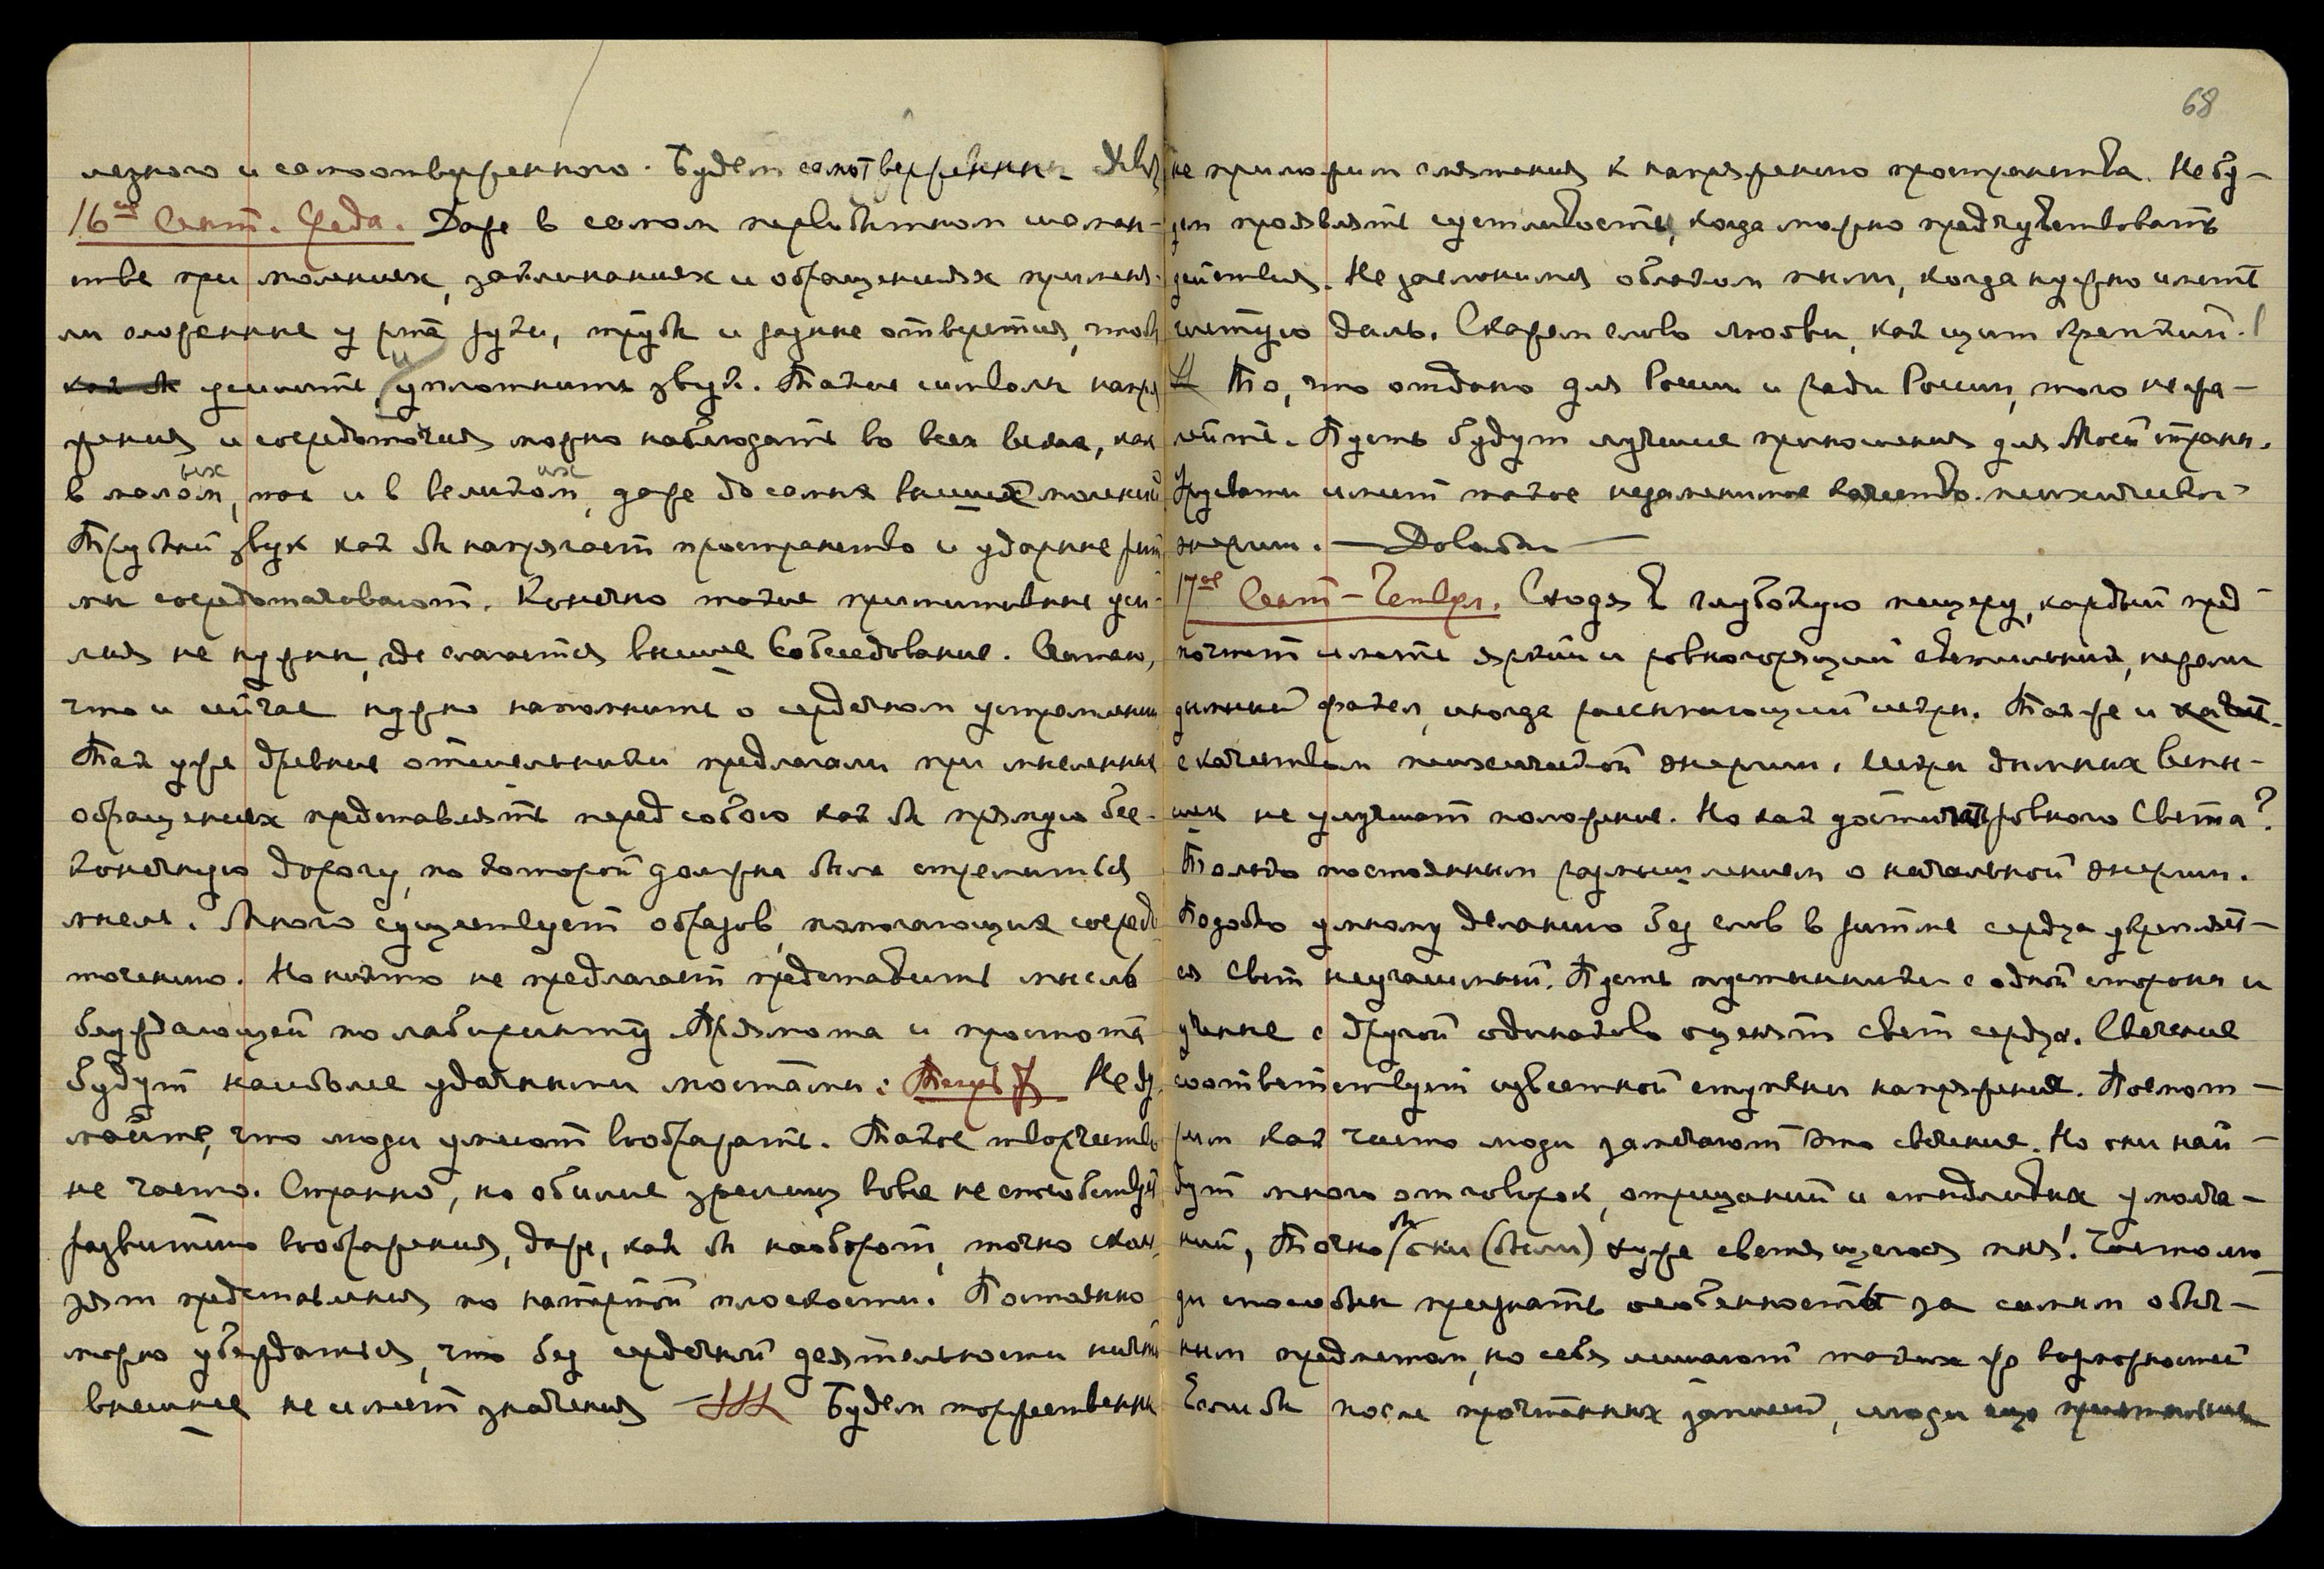 лезного и самоотверженного. Будем самотверженны.
16ое Сент. Среда. Даже в самом первобытном шаман-
стве при молениях, заклинаниях и обращениях применя-
ли сложенные у рта руки, трубы и разные отверстия, чтобы
как бы усилить, и уплотнить звук. Такие символы напря
жения и сосредоточия можно наблюдать во всех веках, как
в малом, так и в великом, даже до самых высших молений
Трубный звук как бы напрягает пространство и ударные рит
мы сосредотачивают. Конечно такие примитивные уси-
лия не нужны, где слагается высшее Собеседование. Считаю,
что и сейчас нужно напомнить о сердечном устремлении
Так уже древние отшельники предлагали при мысленных
обращениях представлять перед собою как бы прямую бес-
конечную дорогу, по которой должна была стремиться
мысль. Много существует образов, помогающих сосредо
точению. Но никто не предлагает представить мысль
блуждающей по лабиринту. Прямота и простота
будут наиболее удачными мостами. Не ду
майте, что люди умеют воображать. Такое творчество
не часто. Странно, но обилие зрелищ вовсе не способствует
развитию воображения, даже, как бы наоборот, точно сколь
зят представления по натертой плоскости. Постоянно
можно убеждаться, что без сердечной деятельности ничто
внешнее не имеет значения Будем торжественны
68
не приложим смятения к напряжению пространства. Не бу-
дем проявлять суетливость, когда можно предчувствовать
действия. Не заслонимся облаком пыли, когда нужно иметь
чистую даль. Скажем слово любви, как щит крепкий.
То, что отдано для России и ради России, того не жа-
лейте. Пусть будут лучшие приношения для Моей страны.
Урусвати имеет такое незаменимое качество психической
энергии. — Довольно —
17ое Сент — Четверг. Сходя в глубокую пещеру, каждый пред-
почтет иметь яркий и ровногорящий светильник, нежели
дымный факел, иногда рассыпающий искры. Также и
с качеством психической энергии. Искры дымных вспы-
шек не улучшат положение. Но как достичь ровного Света?
Только постоянным размышлением о начальной энергии.
Подобно умному деланию без слов в ритме сердца укрепляет-
ся Свет неугасимый. Пусть пустынники с одной стороны и
ученые с другой одинаково оценят свет сердца. Свечение
соответствует известной ступени напряжения. Посмот-
рим как часто люди замечают это свечение. Но они най-
дут много отговорок, отрицаний и стыдливых умолча-
ний, Точно бы они (были) хуже светящегося пня! Часто лю-
ди способны признать особенность за самым обыч-
ным предметом, но себя лишают таких же возможностей
Если бы после прочтенных записей, люди еще